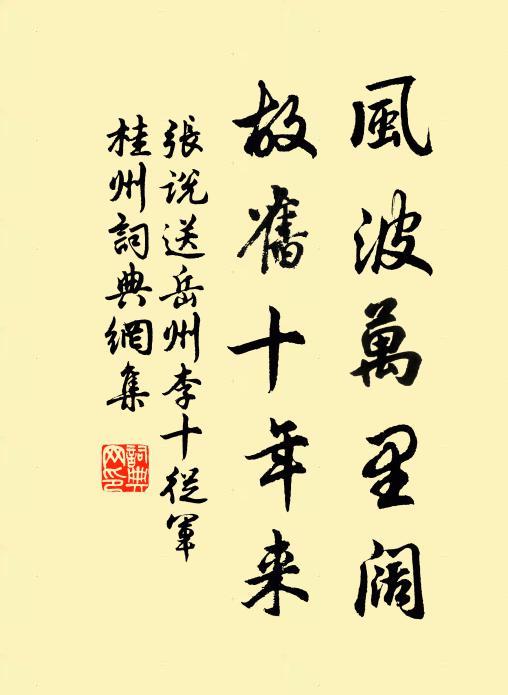 風波萬里闊
故舊十年来
張説送岳州李十從軍
桂州詞典網集
詞典
网印